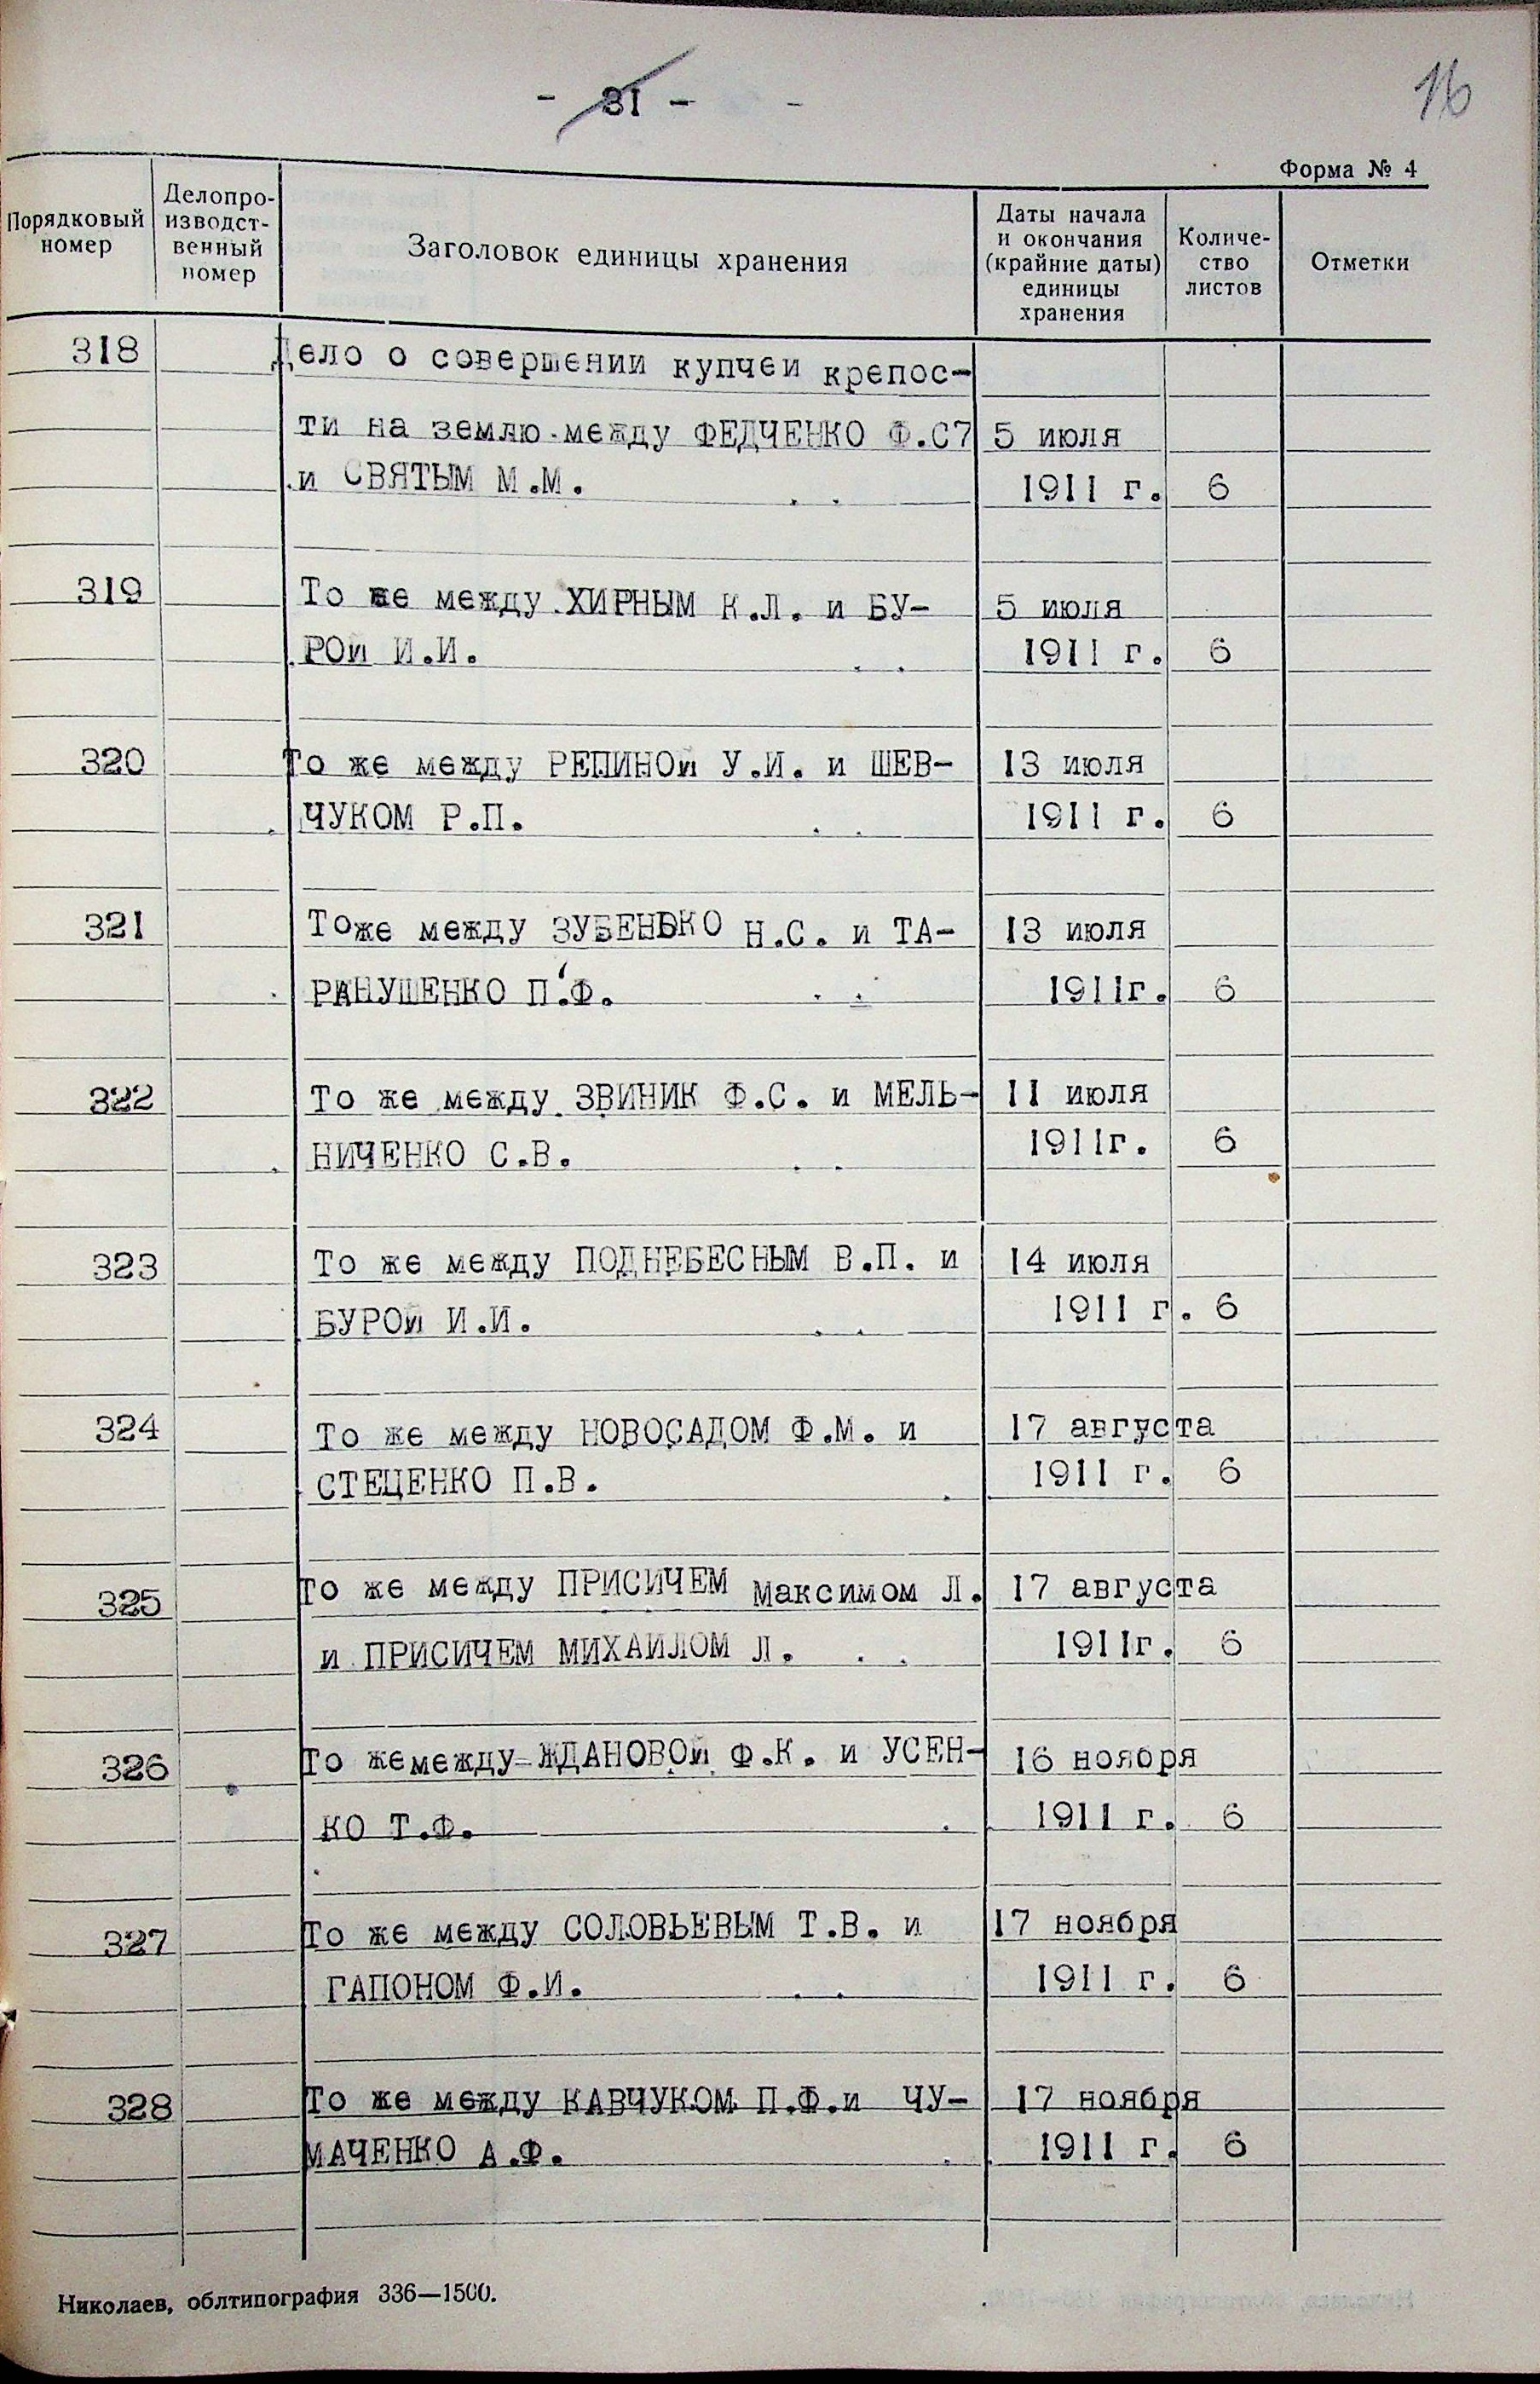 - 31 -
16
Форма № 4
Порядковый номер
Делопро-
изводст-
венный
номер
Заголовок единицы хранения
Даты начала
и окончания
(крайние даты)
единицы
хранения
Количе-
ство
листов
Отметки
318 Дело о совершении купчей крепос-
ти на землю между ФЕДЧЕНКО Ф.С7 5 июля
и СВЯТЫМ М.М. 1911 г. 6
319 То же между ХИРНЫМ К.Л. и БУ- 5 июля
РОЙ И.И. 1911 г. 6
320 То же между РЕПИНОЙ У.И. и ШЕВ- 13 июля
ЧУКОМ Р.П. 1911 г. 6
321 Тоже между ЗУБЕНЬКО Н.С. и ТА- 13 июля
РАНУШЕНКО П.Ф. 1911г. 6
322 То же между ЗВИНИК Ф.С. и МЕЛЬ- 11 июля
НИЧЕНКО С.В. 1911г. 6
323 То же между ПОДНЕБЕСНЫМ В.П. и 14 июля
БУРОЙ И.И. 1911 г. 6
324 То же между НОВОСАДОМ Ф.М. и 17 августа
СТЕЦЕНКО П.В. 1911 г. 6
325 То же между ПРИСИЧЕМ Максимом Л. 17 августа
и ПРИСИЧЕМ МИХАИЛОМ Л. 1911г. 6
326 То жемежду ЖДАНОВОЙ Ф.К. и УСЕН- 16 ноября
КО Т.Ф. 1911 г. 6
327 То же между СОЛОВЬЕВЫМ Т.В. и 17 ноября
ГАПОНОМ Ф.И. 1911 г. 6
328 То же между КАВЧУКОМ П.Ф.и ЧУ- 17 ноября
МАЧЕНКО А.Ф. 1911 г. 6
Николаев, облтипография 336—1500.